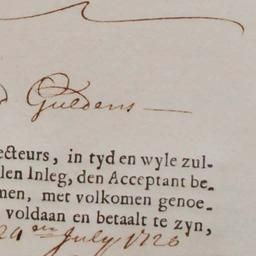 Guldens —
ecteurs, in tyd en wyle zul-
len Inleg, den Acceptant be-
men, met volkomen genoe-
voldaan en betaalt te zyn,
en July 1726